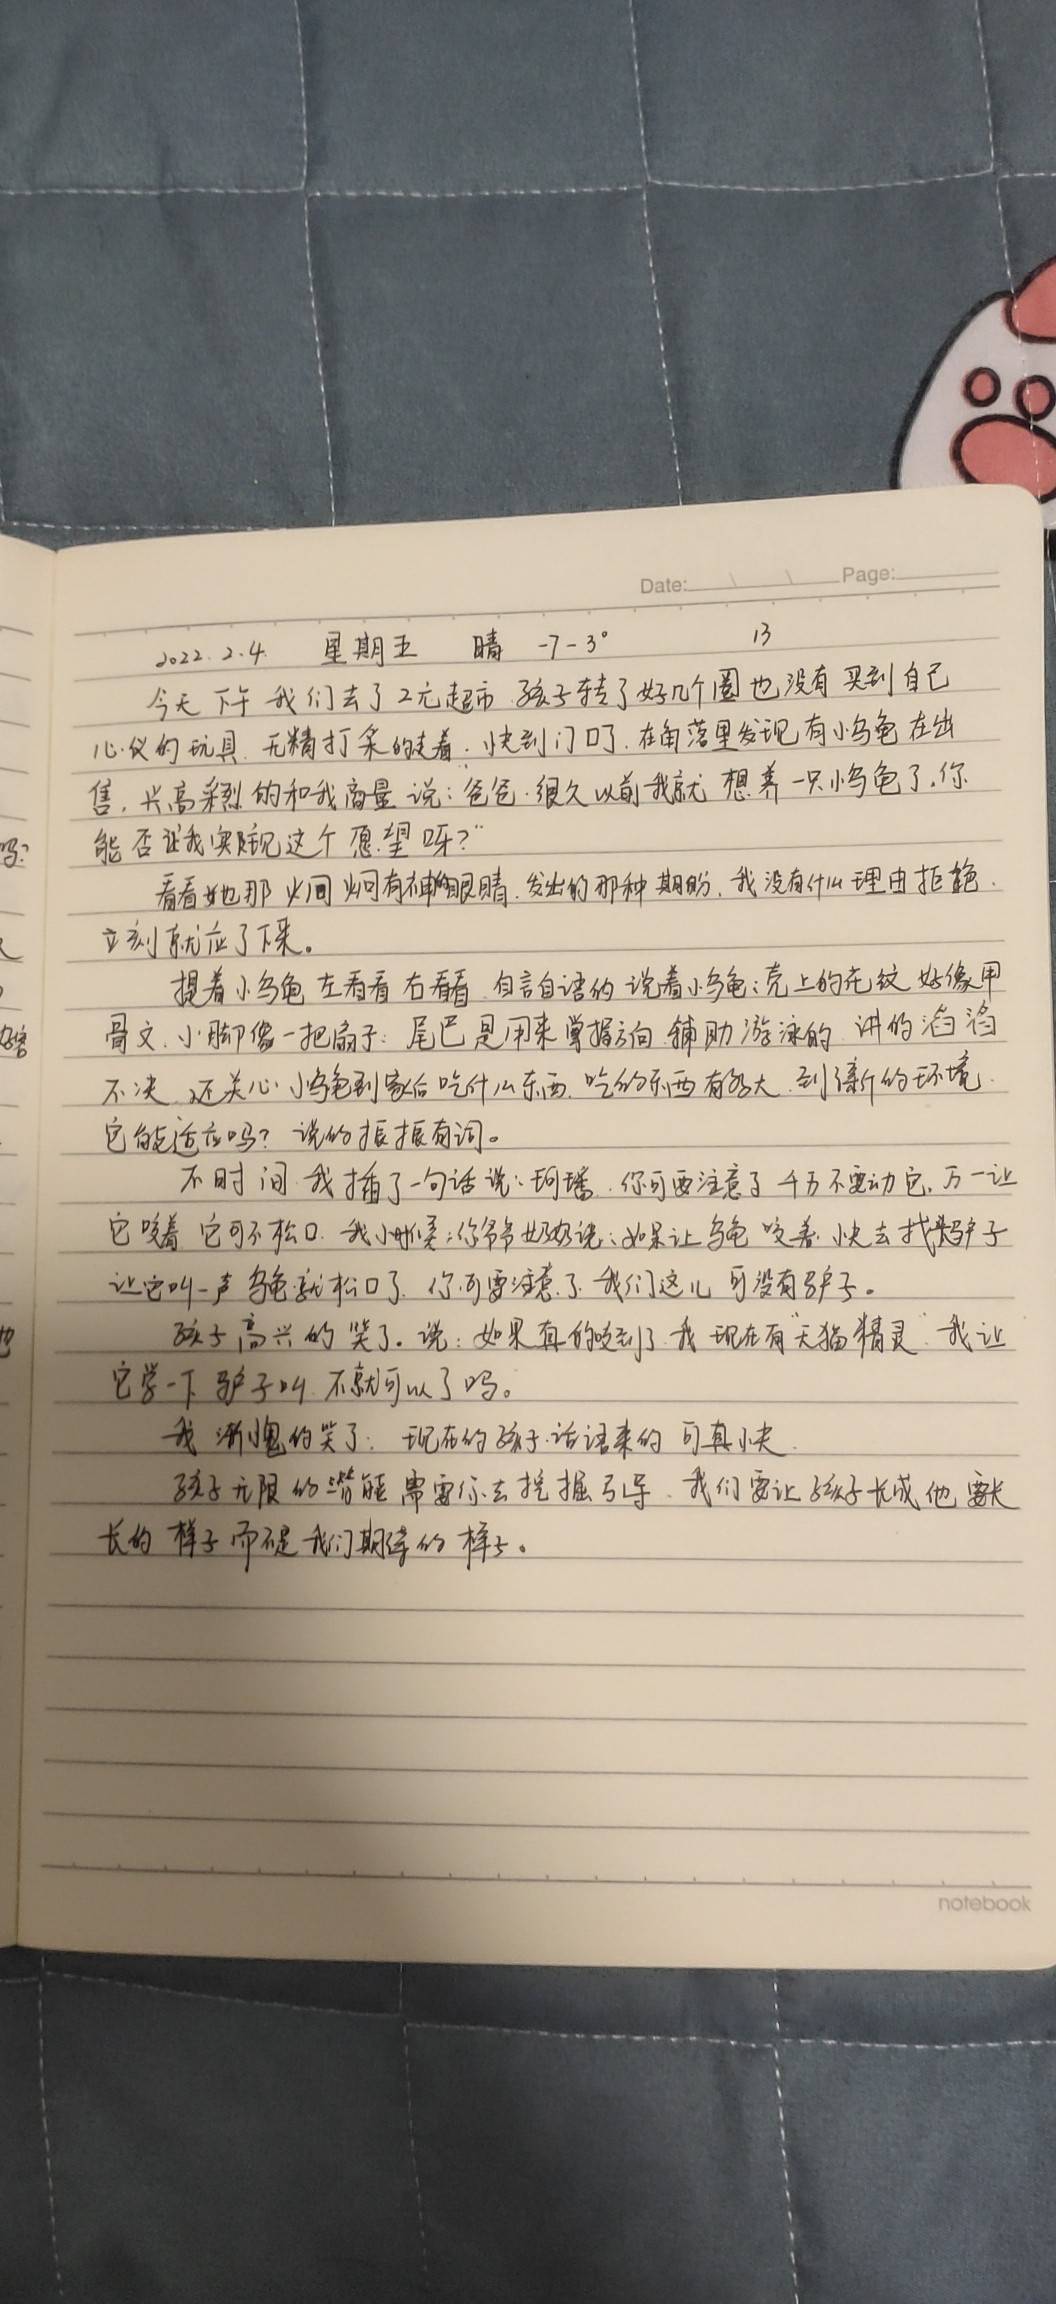 Date: \ \ Page:
2022.2.4 星期五 晴 -7-3° 13
今天下午我们去了2元超市.孩子转了好几个圈也没有买到自己
心仪的玩具.无精打采的走着.快到门口了.在角落里发现有小乌龟在出
售.兴高采烈的和我商量说:爸爸.很久以前我就想养一只小乌龟了.你
能否让我实现这个愿望呀?"
看看她那炯炯有神的眼睛.发出的那种期盼.我没有什么理由拒绝.
立刻就应了下来。
提着小乌龟左看看右看看.自言自语的说着小乌龟:壳上的花纹好像甲
骨文.小脚像一把扇子:尾巴是用来掌握方向.辅助游泳的.讲的滔滔
不决.还关心小乌龟到家后吃什么东西.吃的东西有多大.到新的环境.
它能适应吗?说的振振有词。
不时间.我插了一句话说:珂璠.你可要注意了千万不要动它.万一让
它咬着它可不松口.我小时候:你爷爷奶奶说:如果让乌龟咬着.快去找驴子
让它叫一声乌龟就松口了.你可要注意了.我们这儿可没有驴子。
孩子高兴的笑了.说:如果真的咬到了.我现在有"天猫精灵".我让
它学一下驴子叫.不就可以了吗。
我渐愧的笑了:现在的孩子.话语来的可真快.
孩子无限的潜能需要你去挖掘引导.我们要让孩子长成他要长
长的样子而不是我们期待的样子。
notebook
吗?